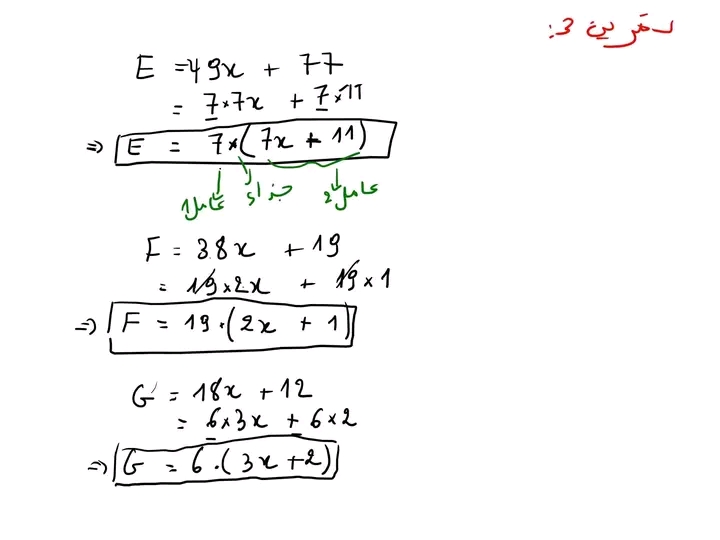 تمرين 3:
E = 49x + 77
= 7×7x + 7×11
=> E = 7×(7x + 11)
عامل1 جذاء عامل2
F = 38x + 19
= 19×2x + 19×1
=> F = 19·(2x + 1)
G = 18x + 12
= 6×3x + 6×2
=> G = 6·(3x+2)